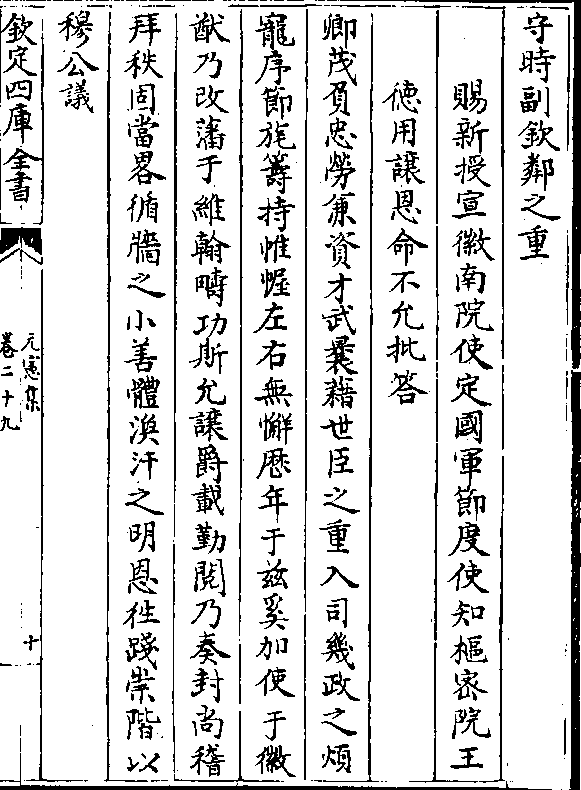 守時副欽鄰之重
賜新授宣徽南院使定國軍節度使知樞宻院王
徳用讓恩命不允批答
卿茂負忠勞兼資才武曩藉世臣之重入司幾政之煩
寵序節旄籌持帷幄左右無懈歴年于兹奚加使于徽
猷乃改藩于維翰疇功斯允讓爵載勤閲乃奏封尚稽
拜秩固當畧循牆之小善體渙汗之明恩徃踐崇階以
穆公議
欽定四庫全書
元憲集
卷二十九
十